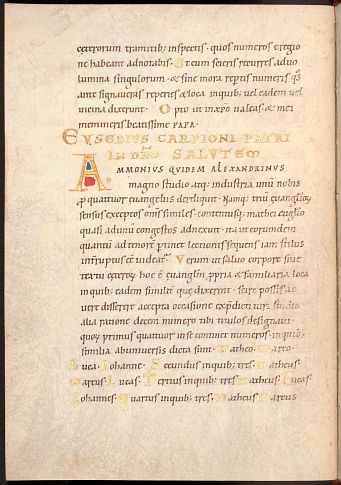 ceterorum tramitib; inspectis · quos numeros e regione
habeant adnotabis · Et cum scieris recurres ad uo
lumina singulorum · & sine mora reptis numeris qs
ante signaueras reperies & loca inquib; uel eadem uel
uicina dixerunt · Opto ut inxpo ualeas · & mei
memineris beatissime PAPA ·
EUSEBIUS CARPIONI FRATRI
IN DNO SALUTEM
AMMONIUS QUIDEM ALEXANDRINUS
magno studio atq; industria unū nobis
p quattuor euangeliis dereliquit · Namq; triū euanglioꝝ
sensus exceptos omīs similes · contenuitq; mathei euglio
quasi ad unū congestos adnexuit · ita ut eorundem
quantū ad tenorē ptinet lectionis sequens iam stilus
interruptus eē uideat · Verum ut saluo corpore siue
textu ceteroꝝ hoc ē euanglm̄ · ppria & familiaria loca
inquib; eadem similit que dixerunt · scire possis ac
uere disserere accepta occasione ex pdicti uiri studio
alia ratione decem numero tibi titulos designaui ·
quoꝝ primus quatuor in se continet numeros · inquib;
similia ab uniuersis dicta sunt · Matheo · Marco ·
Luca · Iohanne · Secundus inquib; tres · Matheus ·
Marcus · Lucas · Tertius inquib; tres · Matheus · Lucas
Iohannes · Quartus inquib; tres · Matheus Marcus